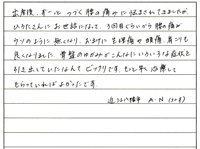 出産後、ずーっとつづく腰の痛みに悩まされてきましたが、
ひろたさんにお世話になって、3回目ぐらいから腰の痛みが
ウソのように無くなり、おまけに生理痛や頭痛、肩こりも
良くなりました。骨盤のゆがみがこんなにいろいろな症状を
引き出していたなんてビックリです。もっと早く治療して
もらっていればよかったです。
A・N